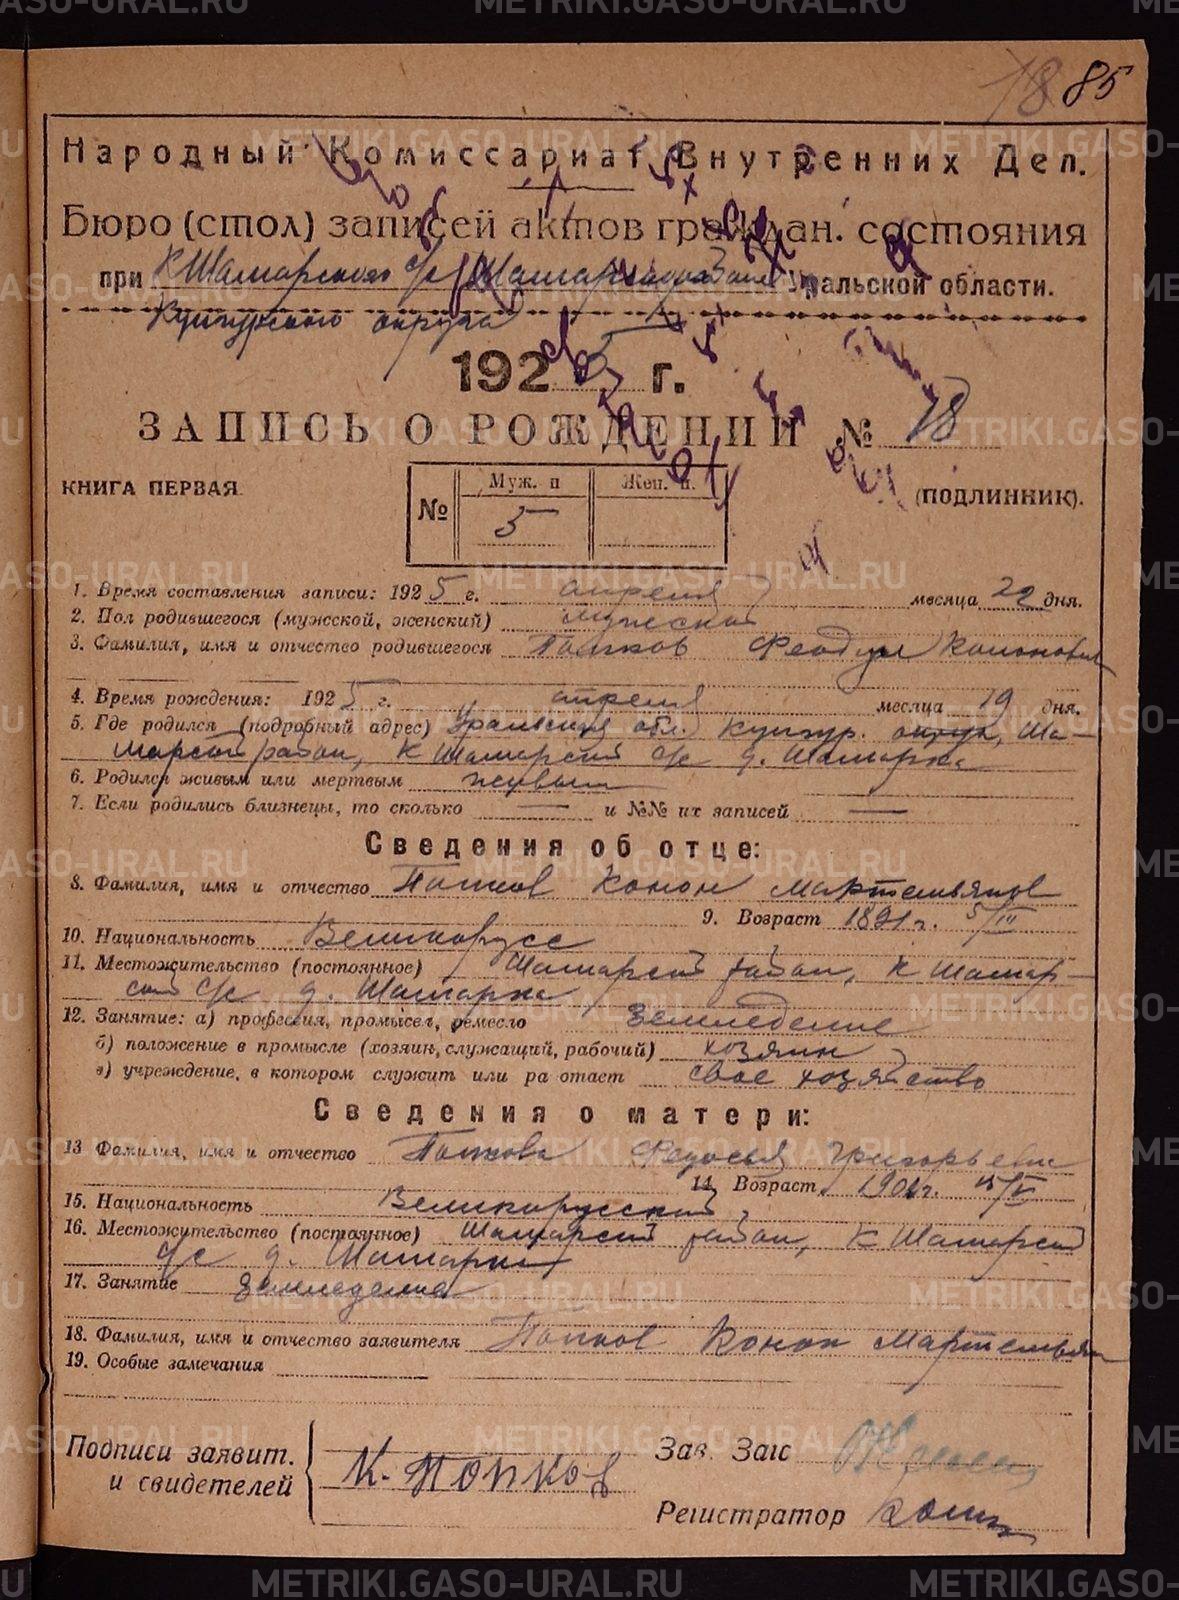 85
Народный Комиссариат Внутренних Дел.
Бюро (стол) записей актов граждан. состояния
при К Шамарского с/с Шамарского Уральской области.
Кунгурского округа
1925 г.
ЗАПИСЬ О РОЖДЕНИИ № 18
КНИГА ПЕРВАЯ.
(ПОДЛИННИК).
№ Муж. п Жен. п.
5
1. Время составления записи: 1925 г. апреля месяца 22 дня.
2. Пол родившегося (мужской, женский) мужской
3. Фамилия, имя и отчество родившегося Попков Феодул Кононович
4. Время рождения: 1925 г. апреля месяца 19 дня.
5. Где родился (подробный адрес) Уральская обл. Кунгур. округ, Ша-
марский район, К Шамарский с/с д. Шамарка
6. Родился живым или мертвым живым
7. Если родились близнецы, то сколько — и №№ их записей —
Сведения об отце:
8. Фамилия, имя и отчество Попков Конон Мартемьянов
9. Возраст 1891 г. 5/III
10. Национальность Великорусс
11. Местожительство (постоянное) Шамарский район, К Шамар-
ский с/с д. Шамарка
12. Занятие: а) профессия, промысел, ремесло Земледелие
б) положение в промысле (хозяин, служащий, рабочий) хозяин
в) учреждение, в котором служит или ра отает свое хозяйство
Сведения о матери:
13 Фамилия, имя и отчество Попкова Федосья Григорьевна
14. Возраст г.
15. Национальность Великорусский
16. Местожительство (постоянное) Шамарский район, К Шамарский
с/с д. Шамарка
17. Занятие Земледелие
18. Фамилия, имя и отчество заявителя Попков Конон Мартемьян
19. Особые замечания
Подписи заявит.
и свидетелей
К. Попков
Зав. Загс
Регистратор
METRIKI.GASO-URAL.RU